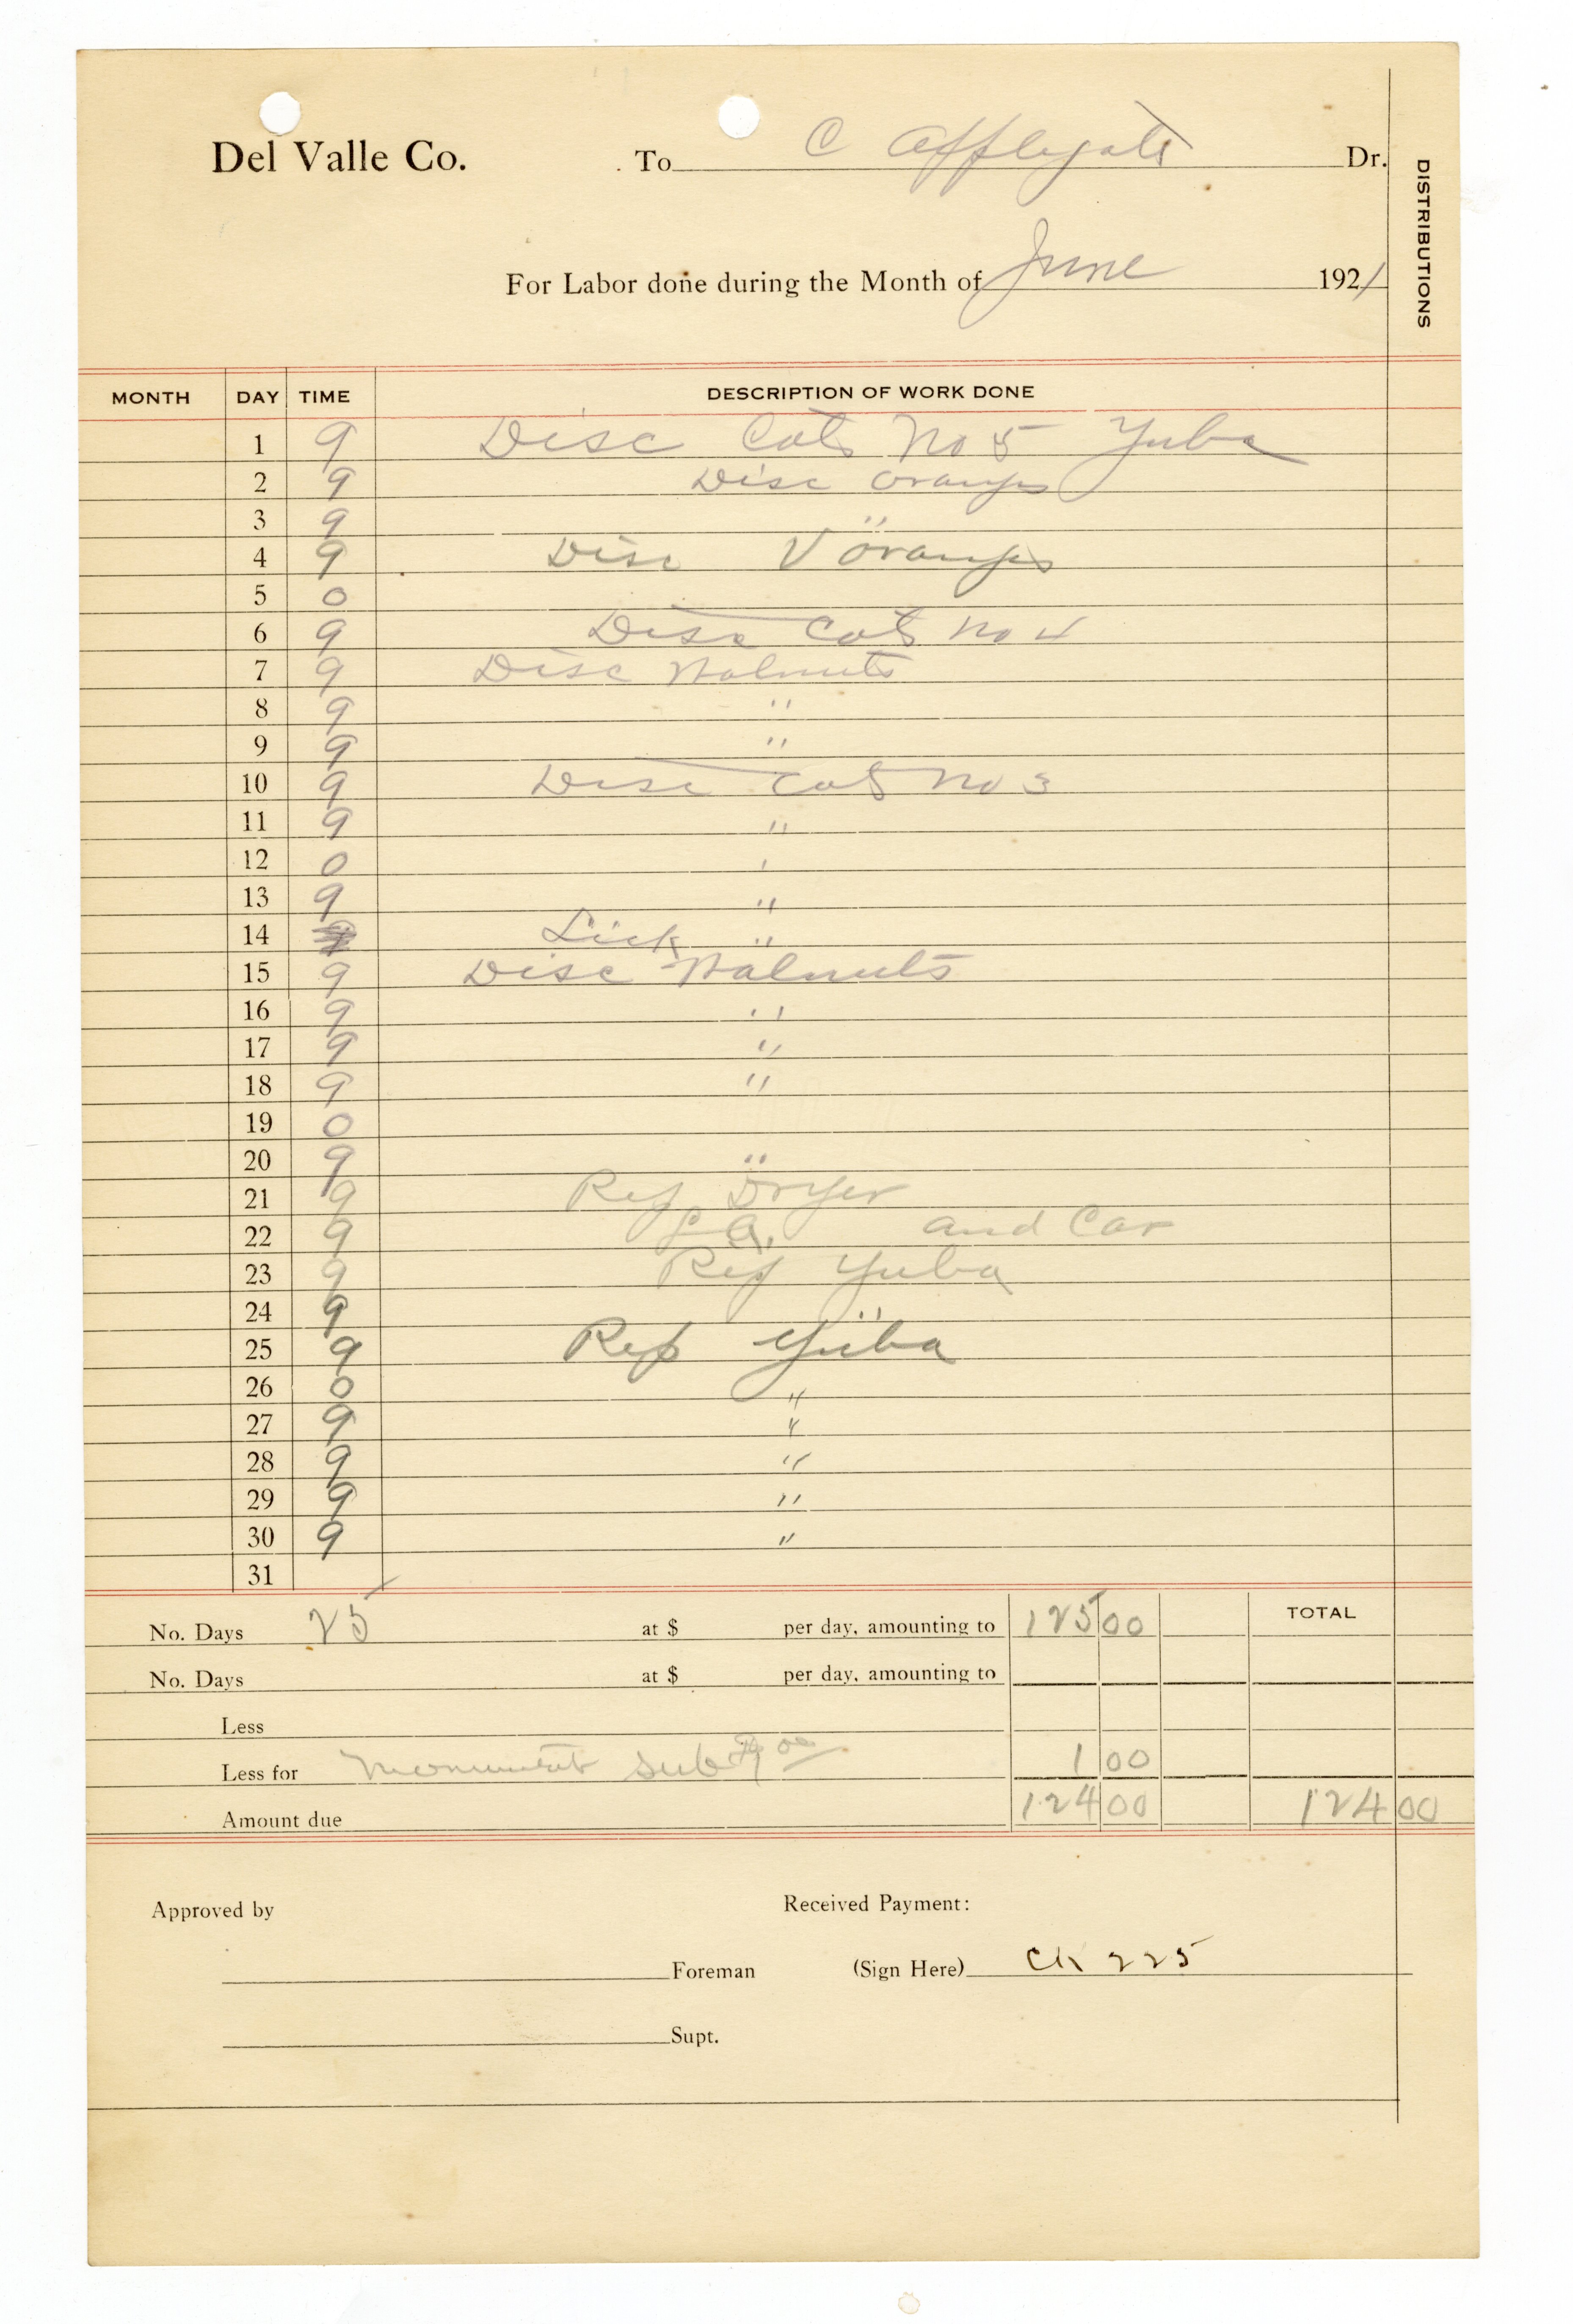 Del Valle Co. To C Applegate Dr.
DISTRIBUTIONS
For Labor done during the Month of June 1921
MONTH DAY TIME DESCRIPTION OF WORK DONE
1 9 Disc Cots No 5 Yuba
2 9 Disc oranges
3 9 "
4 9 Disc V oranges
5 0
6 9 Disc Cots No 4
7 9 Disc Walnuts
8 9 "
9 9 "
10 9 Disc Cots No 3
11 9 "
12 0 '
13 9 "
14 Sick "
15 9 Disc Walnuts
16 9 "
17 9 "
18 9 "
19 0
20 9 "
21 9 Rep Dryer
22 9 L.A. and Car
23 9 Rep Yuba
24 9 "
25 9 Rep Yuba
26 0 "
27 9 "
28 9 "
29 9 "
30 9 "
31
No. Days 25 at $ per day, amounting to 125 00 TOTAL
No. Days at $ per day, amounting to
Less
Less for Monument sub 1 00
Amount due 124 00 124 00
Approved by Received Payment:
Foreman (Sign Here) Ck 225
Supt.